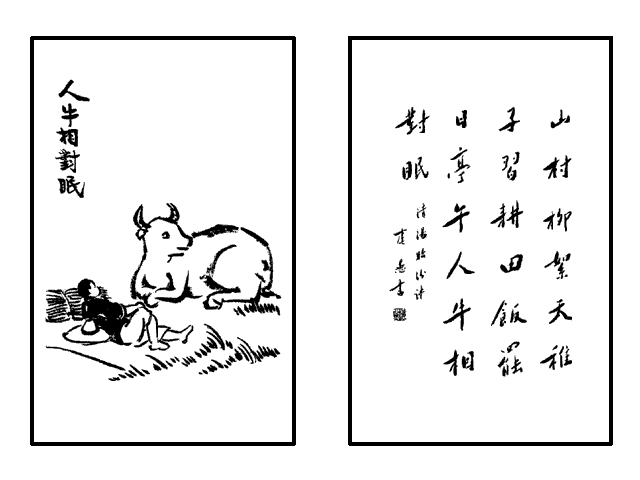 人牛相對眠
山村柳絮天稚
子習耕田飯罷
日亭午人牛相
對眠
清湯貽汾诗
虞愚书